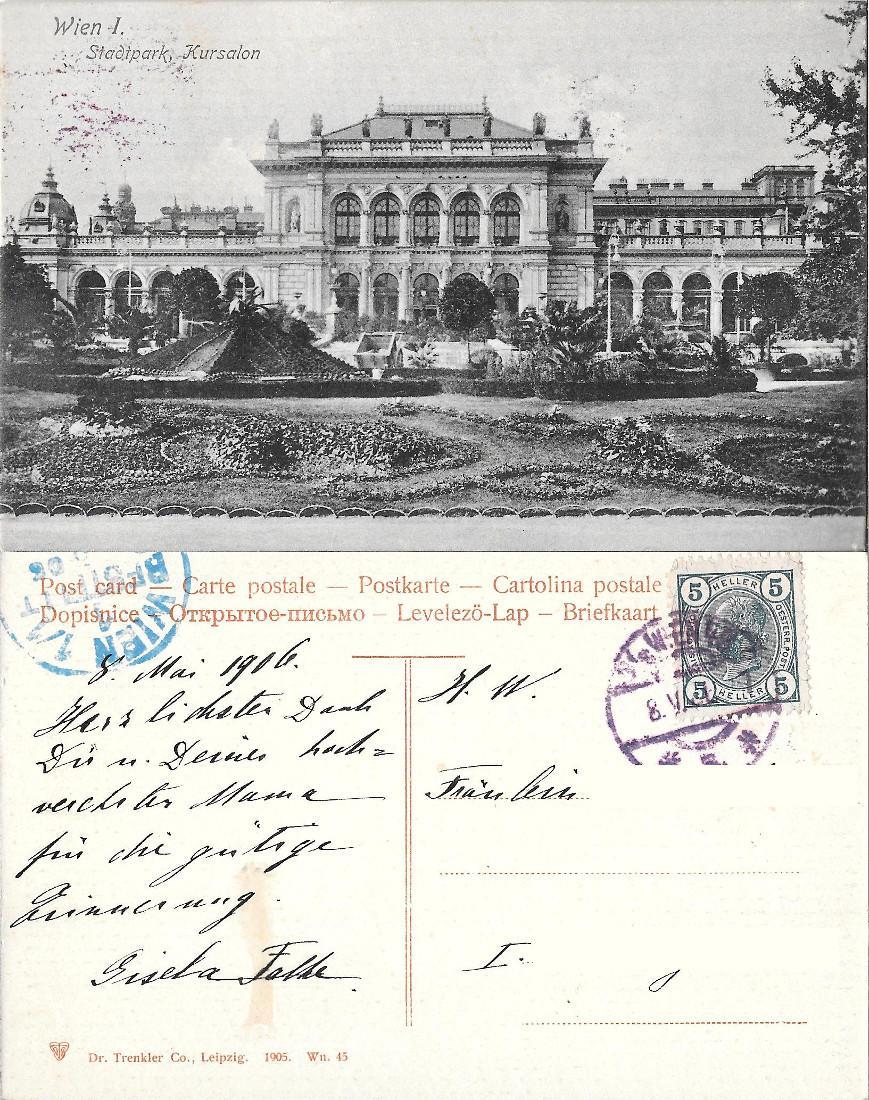 Wien I.
Stadtpark, Kursalon
Post card — Carte postale — Postkarte — Cartolina postale
Dopisnice — Открытое-письмо — Levelező-Lap — Briefkaart
WIEN 1/1
BEST
06
5 HELLER 5
5 HELLER 5
WIEN
8. V
8. Mai 1906.
Herzlichsten Dank
Dir u. Deiner hoch=
verehrten Mama
für die gütige
Erinnerung.
Gisela Falke
H. W.
Fräulein
I.
Dr. Trenkler Co., Leipzig. 1905. Wn. 45